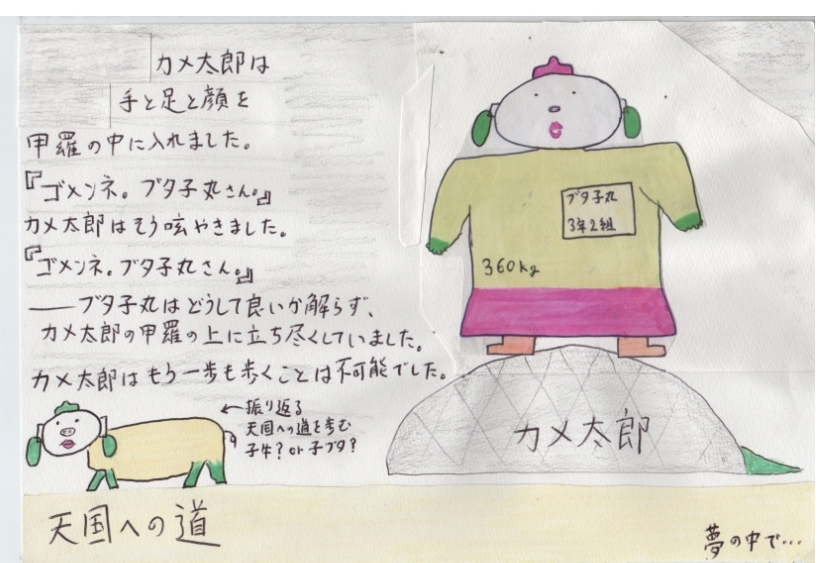 カメ太郎は
手と足と顔を
甲羅の中に入れました。
『ゴメンネ。ブタ子丸さん。』
カメ太郎はそう呟やきました。
『ゴメンネ。ブタ子丸さん。』
──ブタ子丸はどうして良いか解らず、
カメ太郎の甲羅の上に立ち尽くしていました。
カメ太郎はもう一歩も歩くことは不可能でした。
←振り返る
天国への道を歩む
子牛?or子ブタ?
天国への道
ブタ子丸
3年2組
360kg
カメ太郎
夢の中で…